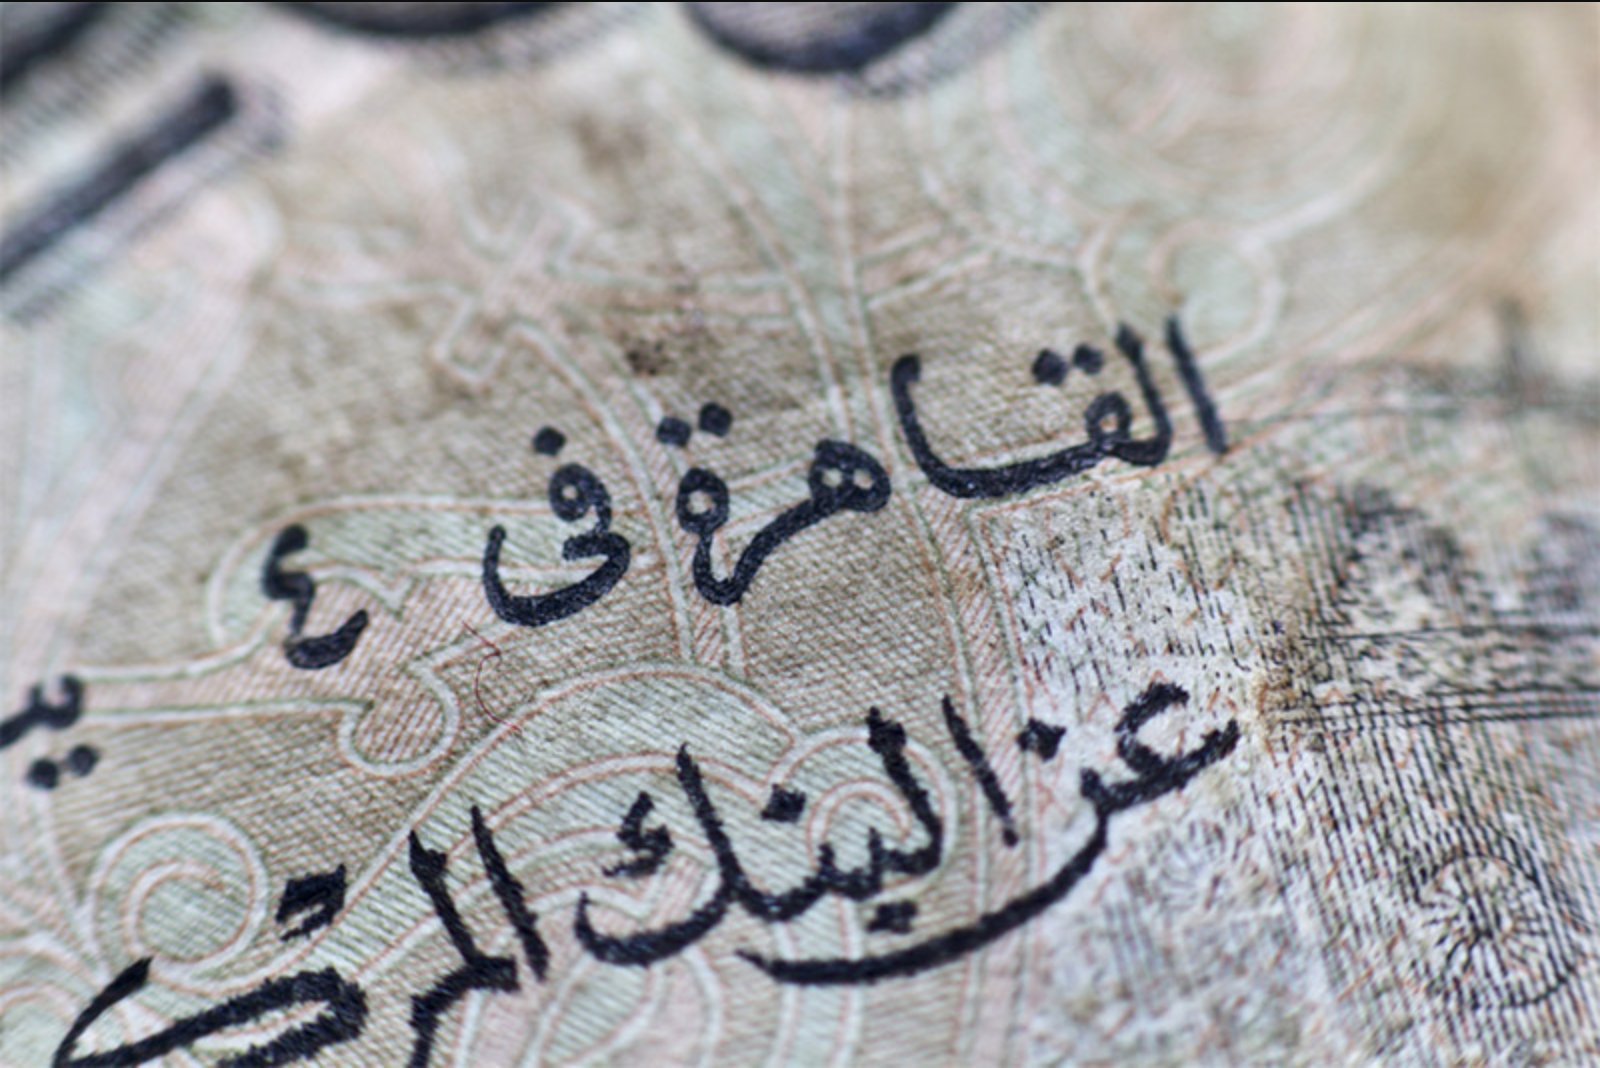 القاهرة فى ٤
عن البنك المر